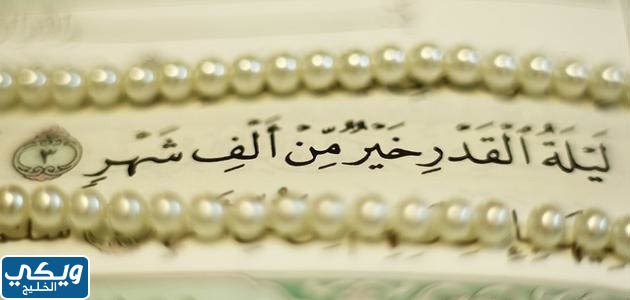 لَيْلَةُ ٱلْقَدْرِ خَيْرٌ مِّنْ أَلْفِ شَهْرٍ ٣
ويكي
الخليج